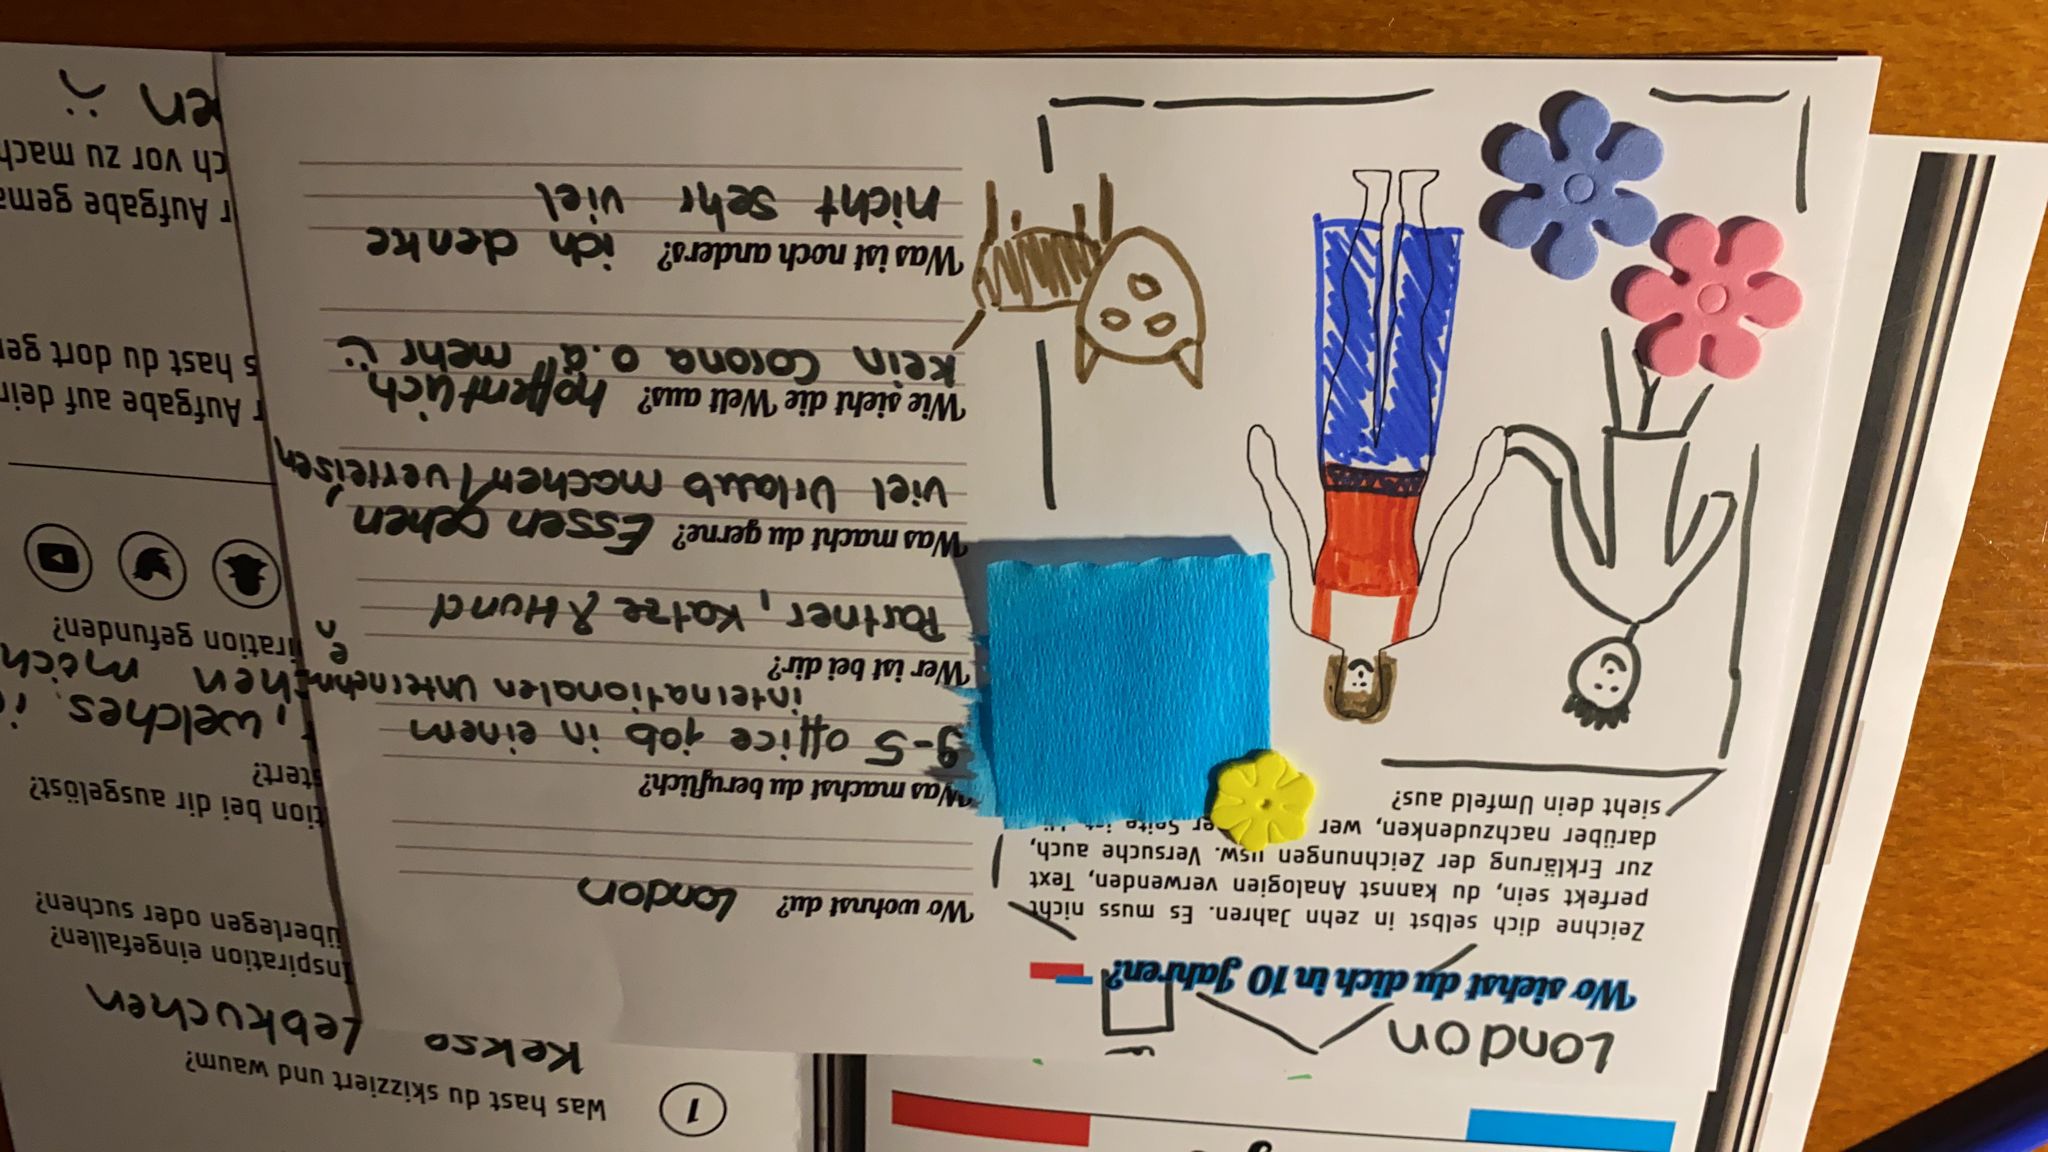 London
Wo siehst du dich in 10 Jahren?
Zeichne dich selbst in zehn Jahren. Es muss nicht
perfekt sein, du kannst Analogien verwenden, Text
zur Erklärung der Zeichnungen usw. Versuche auch,
darüber nachzudenken, wer er Seite ist.
sieht dein Umfeld aus?
Wo wohnst du? London
Was machst du beruflich?
9-5 office job in einem
internationalen Unternehmen
Wer ist bei dir?
Partner, Katze & Hund
Was macht du gerne? Essen gehen,
viel Urlaub machen / verreisen
Wie sieht die Welt aus? hoffentlich
kein Corona o.ä mehr
Was ist noch anders? ich denke
nicht sehr viel
1 Was hast du skizziert und waum?
Kekse Lebkuchen
Inspiration eingefallen?
überlegen oder suchen?
tion bei dir ausgelöst?
stert?
, welches
hen möch
iration gefunden?
r Aufgabe auf dein
s hast du dort ge
r Aufgabe gema
ch vor zu mach
en